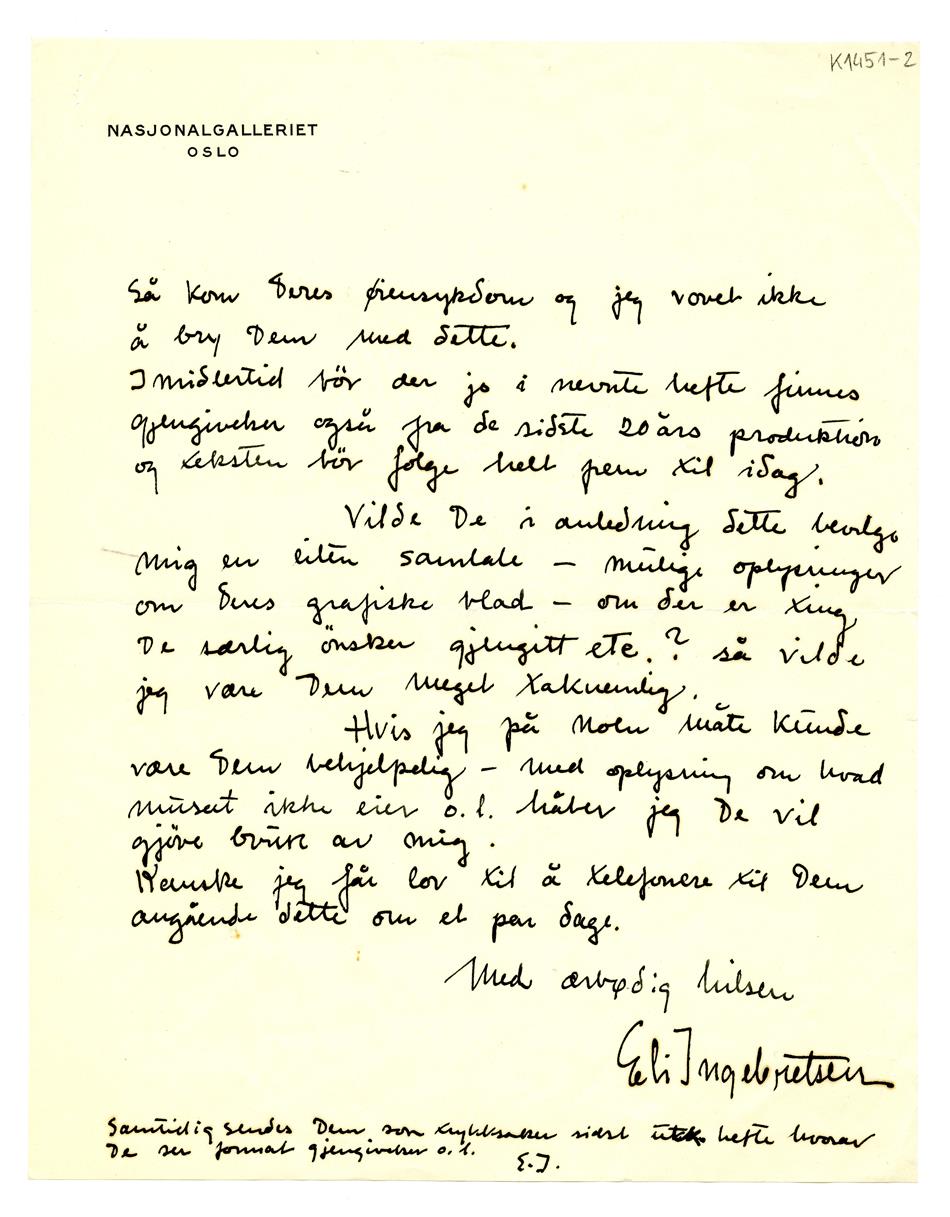 K1451-2
NASJONALGALLERIET
OSLO
Så kom Deres øiensykdom og jeg vovet ikke
å bry Dem med dette.
Imidlertid bör der jo i nevnte hefte finnes
gjengivelser også fra de sidste 20 års produktion
og teksten bör følge helt frem til idag.
Vilde De i anledning dette bevilge
mig en liten samtale – mulige oplysninger
om Deres grafiske blad – om der er ting
De særlig önsker gjengitt etc. ? så vilde
jeg være Dem meget taknemlig.
Hvis jeg på noen måte kunde
være Dem behjelpelig – med oplysning om hvad
museet ikke eier o.l. håber jeg De vil
gjöre bruk av mig.
Kanske jeg får lov til å telefonere til Dem
angående dette om et par dage.
Med ærbødig hilsen
Eli Ingebretsen
Samtidig sendes Dem som tryksaker sidst hefte hvorav
De ser format gjengivelser o.l.
E.I.